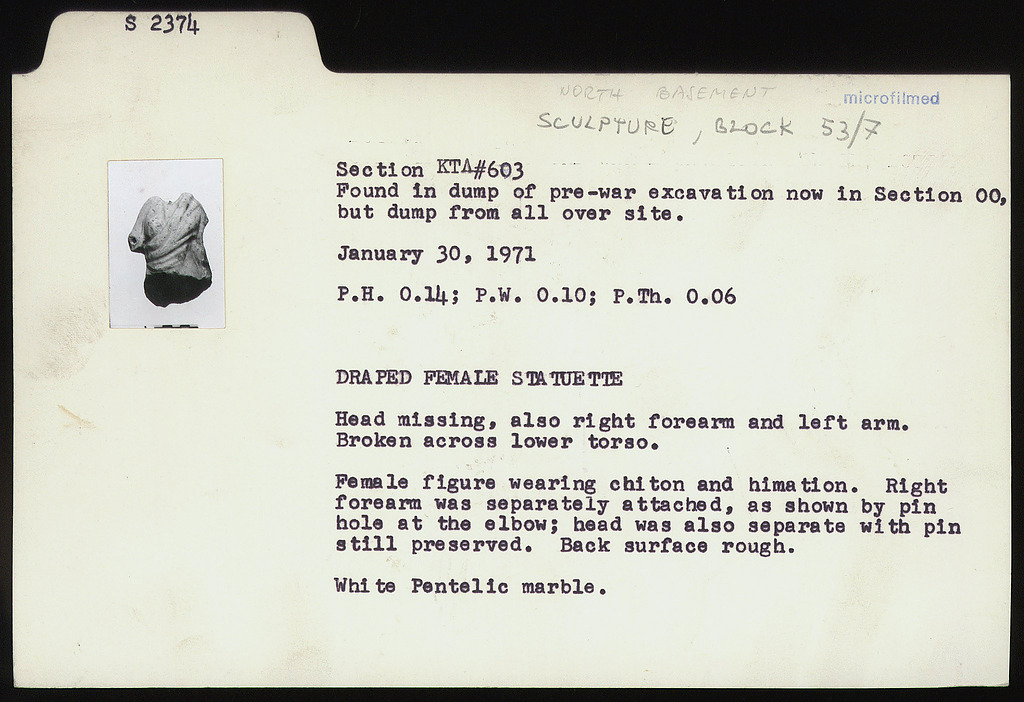 S 2374
NORTH BASEMENT
microfilmed
SCULPTURE, BLOCK 53/7
Section KTA#603
Found in dump of pre-war excavation now in Section OO,
but dump from all over site.
January 30, 1971
P.H. 0.14; P.W. 0.10; P.Th. 0.06
DRAPED FEMALE STATUETTE
Head missing, also right forearm and left arm.
Broken across lower torso.
Female figure wearing chiton and himation. Right
forearm was separately attached, as shown by pin
hole at the elbow; head was also separate with pin
still preserved. Back surface rough.
White Pentelic marble.